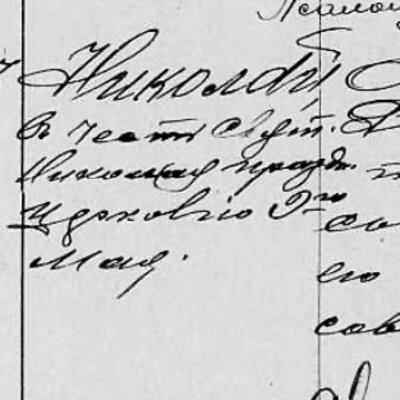 Псалом
Николай
въ честь Свят.
Николая празд.
Церковію 9го
Мая.
со
его
сов